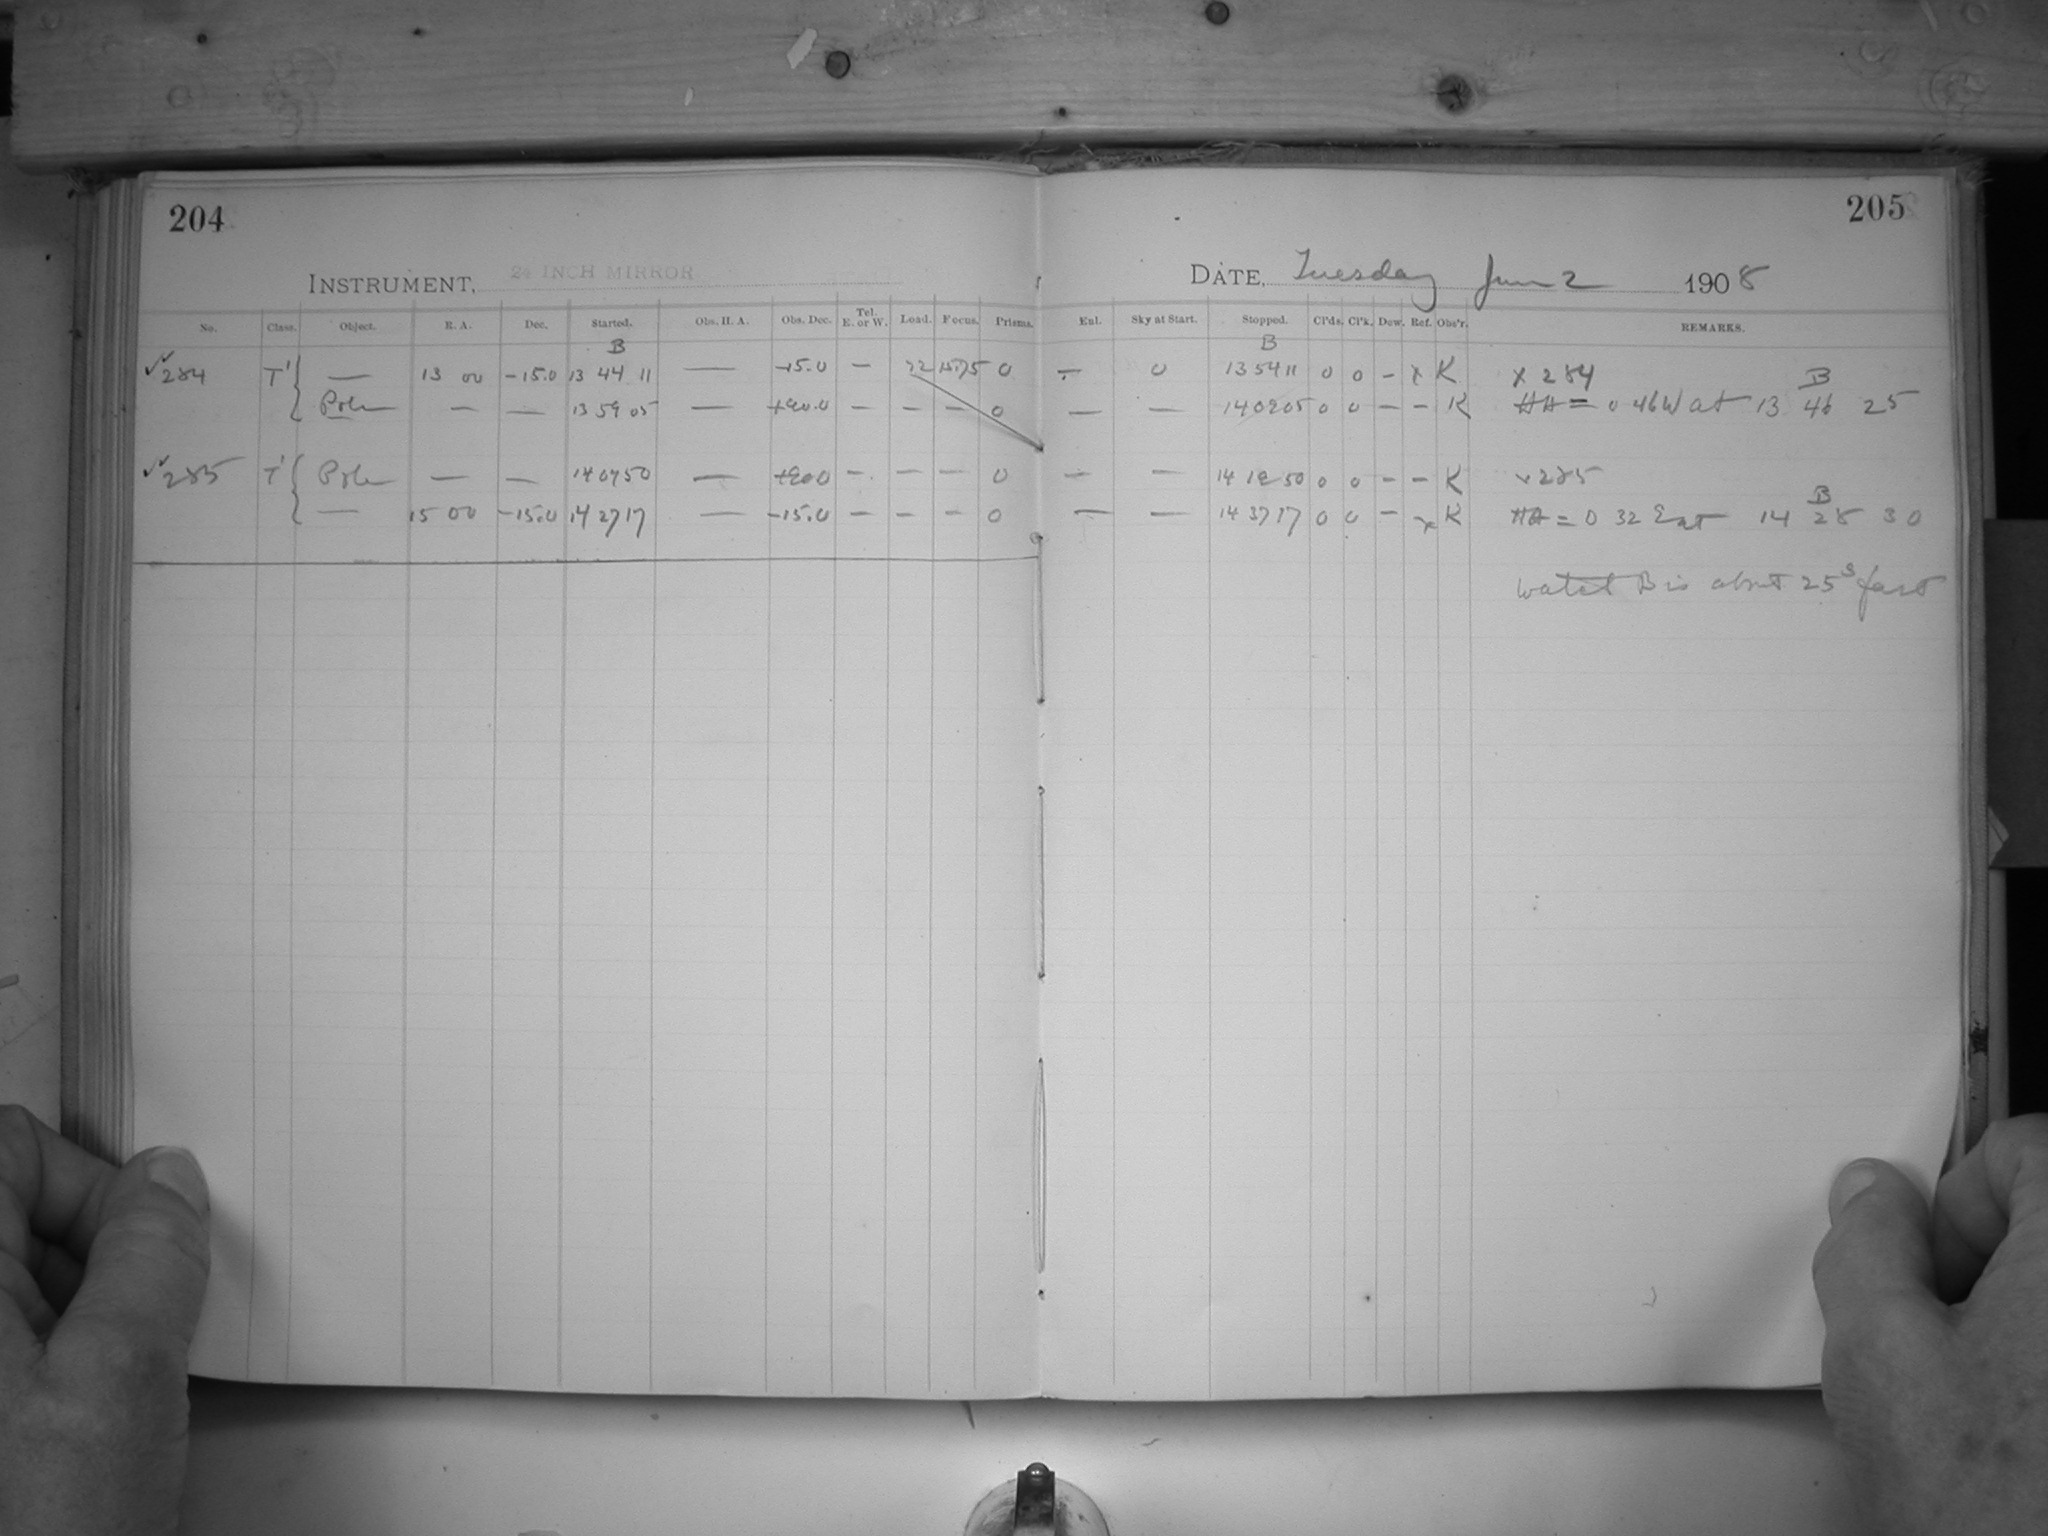 204
INSTRUMENT, 24 INCH MIRROR
No. Class. Object. R. A. Dec. Started. Obs. H. A. Obs. Dec. Tel. E. or W. Load. Focus. Prisms.
B
284 T' { — 13 00 -15.0 13 44 11 — -15.0 — 22 0
Pole — — 13 59 05 — +90.0 — — — 0
285 T' { Pole — — 14 07 50 — +90.0 — — — 0
— 15 00 -15.0 14 27 17 — -15.0 — — — 0
205
DATE, Tuesday June 2 1908
Eul. Sky at Start. Stopped. Cl'ds. Cl'k. Dew. Ref. Obs'r. REMARKS.
B
— 0 13 54 11 0 0 - x K x 284
B
— — 14 09 05 0 0 — — K HA = 0 46 W at 13 46 25
— — 14 18 50 0 0 - - K x 285
B
— — 14 37 17 0 0 - x K HA = 0 32 E at 14 28 30
Watch B is about 25s fast